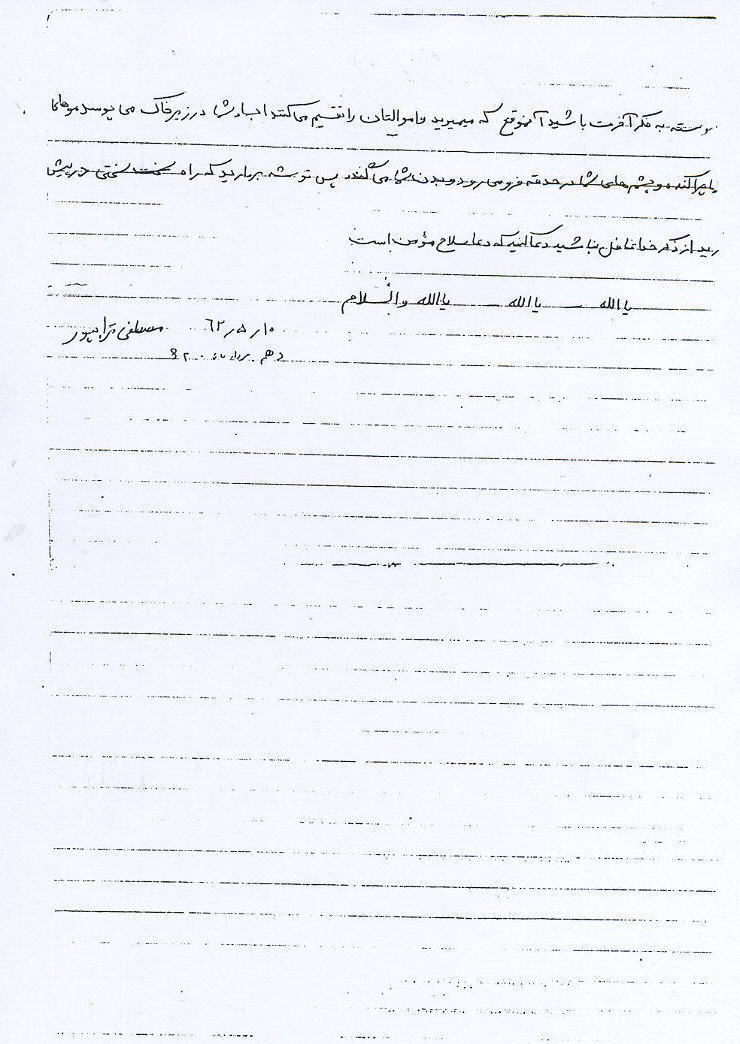 پیوسته به فکر آخرت باشید آنموقع که میمیرید و اموالتان را تقسیم می‌کنند اجساد شما در زیر خاک می پوسد موهایتان
پراکنده و چشم های شما در حدقه فرو می رود و بدن شما می گندد پس توشه بردارید که راه سخت سختی در پیش
دارید از ذکر خدا غافل نباشید دعا کنید که دعا سلاح مؤمن است
یا الله یا الله یا الله والسّلام
۶۲٫۵٫۱۰ مصطفی ترابپور
دهم مرداد ماه ۶۲